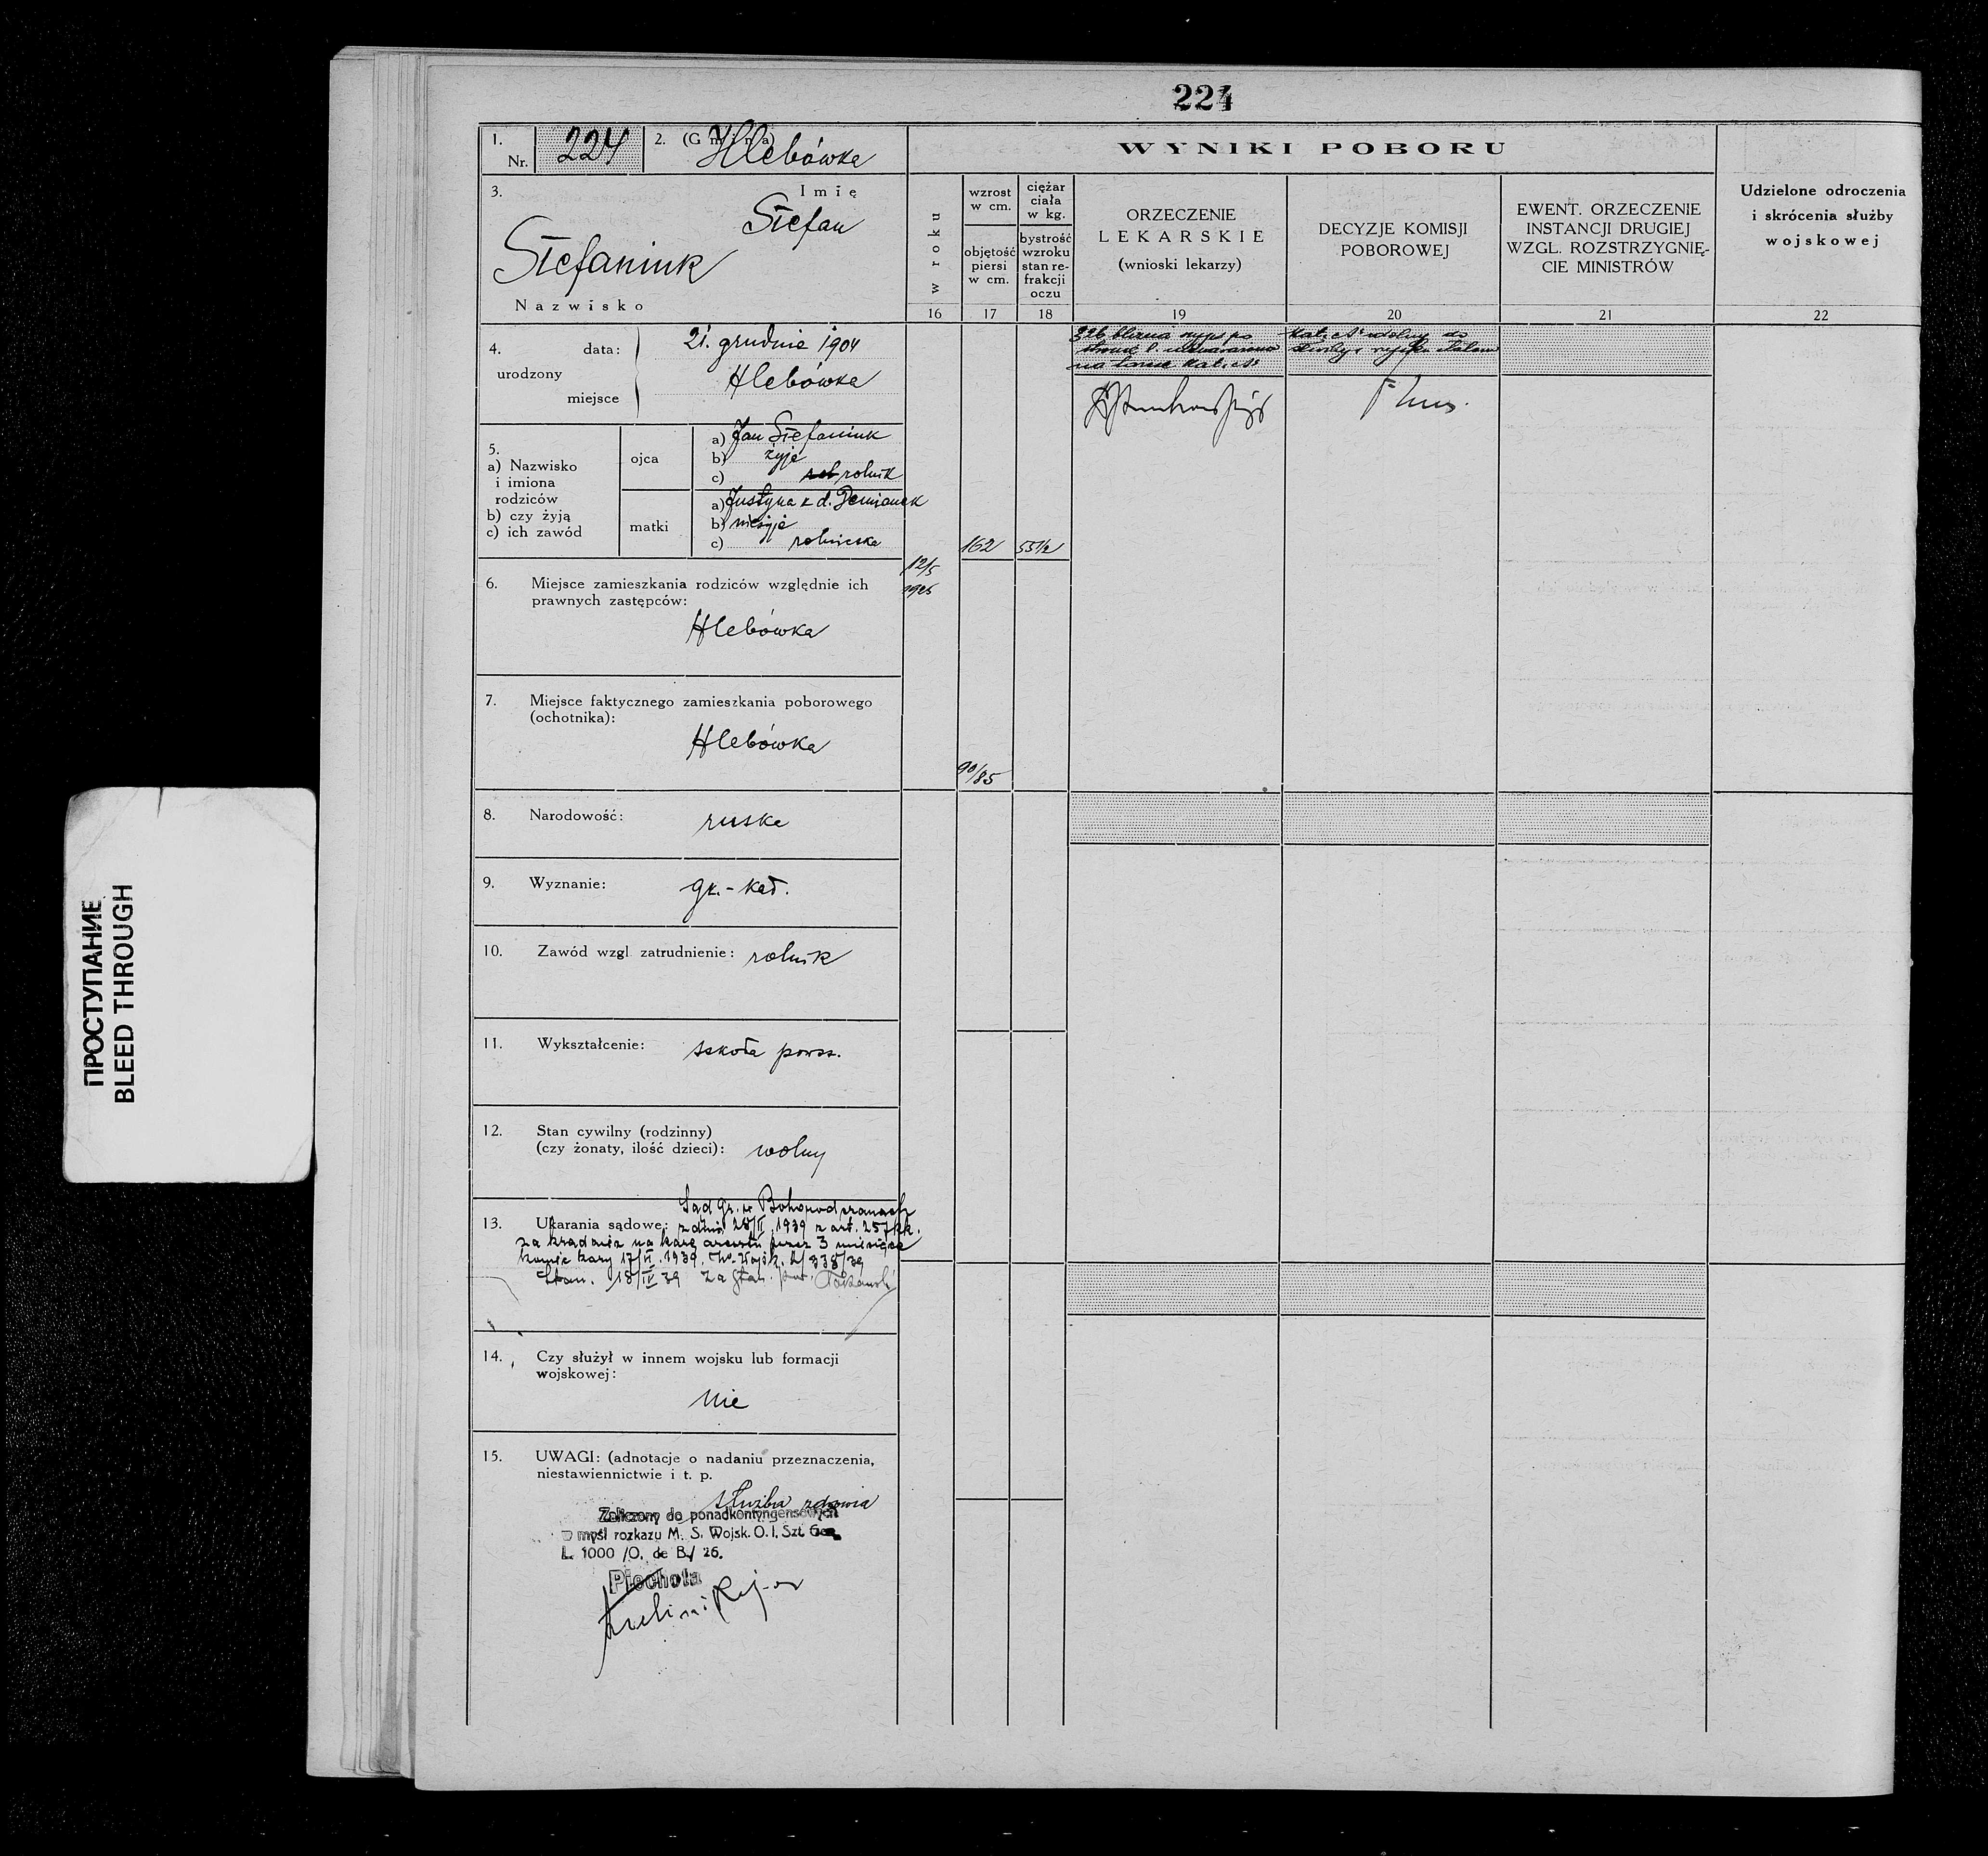 224
1. Nr. 224 2. (Gmina) Hlebówka
3. Imię
Stefan
Stefaniuk
Nazwisko
4. urodzony
data: 21. grudnia 1904
miejsce Hlebówka
5.
a) Nazwisko i imiona rodziców
b) czy żyją
c) ich zawód
ojca
a) Jan Stefaniuk
b) żyje
c) rolnik
matki
a) Justyna z d.
b) nieżyje
c) rolniczka
6. Miejsce zamieszkania rodziców względnie ich
prawnych zastępców:
Hlebówka
7. Miejsce faktycznego zamieszkania poborowego
(ochotnika):
Hlebówka
8. Narodowość: ruska
9. Wyznanie: gr.-kat.
10. Zawód wzgl. zatrudnienie: rolnik
11. Wykształcenie: szkoła powsz.
12. Stan cywilny (rodzinny)
(czy żonaty, ilość dzieci): wolny
Sąd Gr. w Bohorodczanach
13. Ukarania sądowe: z dnia 28/II 1939 z art. 257 kk.
za kradzież na karę aresztu przez 3 miesiące
koniec kary 17/VI. 1939. 338/39
18/IV 39 za
14. Czy służył w innem wojsku lub formacji
wojskowej:
Nie
15. UWAGI: (adnotacje o nadaniu przeznaczenia,
niestawiennictwie i t. p.
służba zdrowia
Zaliczony do ponadkontyngensowych
w myśl rozkazu M. S. Wojsk. O. I. Szt. Gen.
L. 1000 /O. de B./ 26.
Piechota
WYNIKI POBORU
w roku
16
wzrost
w cm.
objętość
piersi
w cm.
17
ciężar
ciała
w kg.
bystrość
wzroku
stan re-
frakcji
oczu
18
ORZECZENIE
LEKARSKIE
(wnioski lekarzy)
19
DECYZJE KOMISJI
POBOROWEJ
20
EWENT. ORZECZENIE
INSTANCJI DRUGIEJ
WZGL. ROZSTRZYGNIĘ-
CIE MINISTRÓW
21
Udzielone odroczenia
i skrócenia służby
wojskowej
22
12/5
162
55 1/2
90/85
ПРОСТУПАНИЕ
BLEED THROUGH